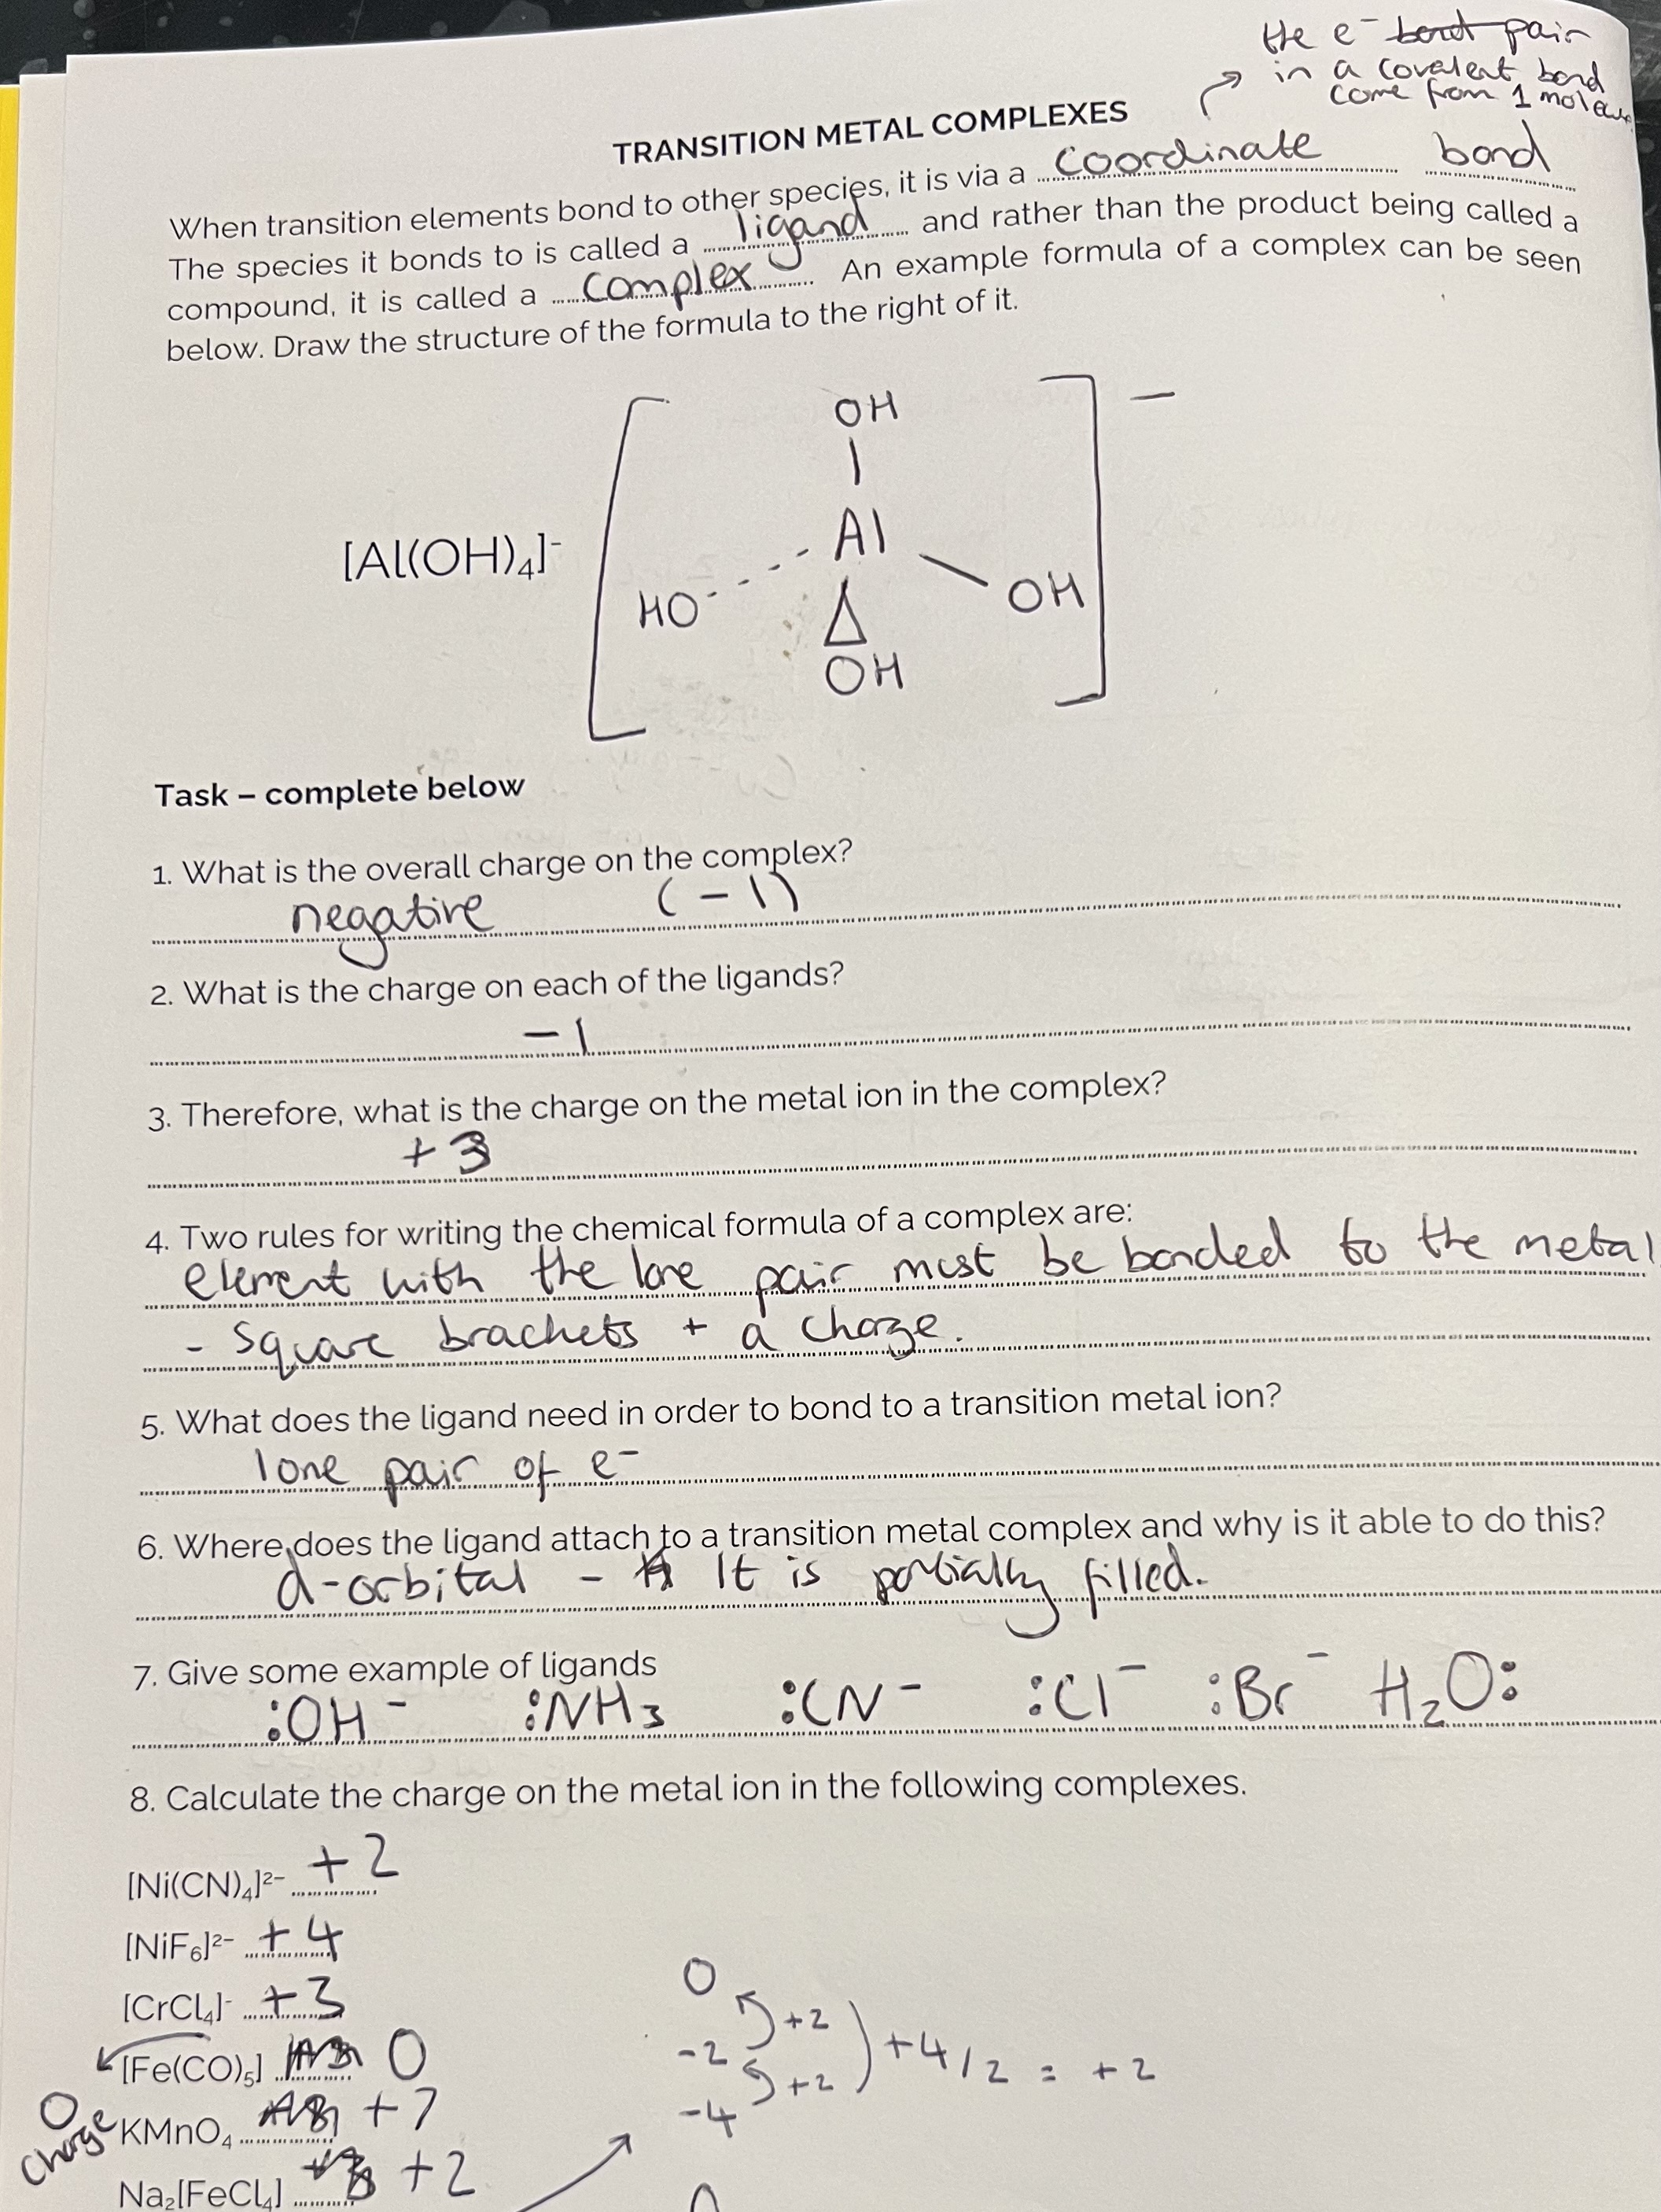 the e⁻ pair
in a covalent bond
come from 1 molecule
TRANSITION METAL COMPLEXES
When transition elements bond to other species, it is via a coordinate bond
The species it bonds to is called a ligand and rather than the product being called a
compound, it is called a complex. An example formula of a complex can be seen
below. Draw the structure of the formula to the right of it.
OH
[Al(OH)₄]⁻ Al −
HO OH
OH
Task – complete below
1. What is the overall charge on the complex?
negative (-1)
2. What is the charge on each of the ligands?
-1
3. Therefore, what is the charge on the metal ion in the complex?
+3
4. Two rules for writing the chemical formula of a complex are:
element with the lone pair must be bonded to the metal
- Square brackets + a charge.
5. What does the ligand need in order to bond to a transition metal ion?
lone pair of e⁻
6. Where does the ligand attach to a transition metal complex and why is it able to do this?
d-orbital - It is partially filled.
7. Give some example of ligands
:OH⁻ :NH₃ :CN⁻ :Cl⁻ :Br⁻ H₂O:
8. Calculate the charge on the metal ion in the following complexes.
[Ni(CN)₄]²⁻ +2
[NiF₆]²⁻ +4
[CrCl₄]⁻ +3
[Fe(CO)₅] 0
0 charge
KMnO₄ +7
Na₂[FeCl₄] +2
0
+2
-2 +4/2 = +2
+2
-4